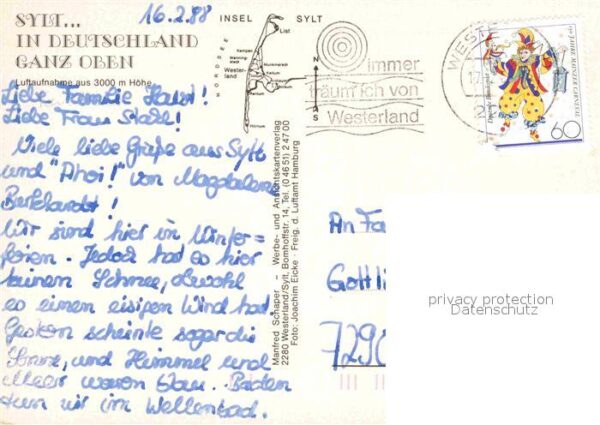 16.2.88
SYLT...
IN DEUTSCHLAND
GANZ OBEN
Luftaufnahme aus 3000 m Höhe
INSEL SYLT
NORDSEE
List
Kampen
Westerland
Munkmarsch
Keitum
Rantum
Hörnum
N
S
immer
träum ich von
Westerland
WESTE
17
150 JAHRE MAINZER CARNEVAL
Deutsche Bundespost
60
Liebe Familie
Liebe Frau
Viele liebe Grüße aus Sylt
und "Ahoi!" von Magdalena
Burkhardt!
Wir sind hier in Winter=
ferien. Jedoch hat es hier
keinen Schnee, obwohl
es einen eisigen Wind hat.
Gestern scheinte sogar die
Sonne, und Himmel und
Meer waren blau. Baden
tun wir im Wellenbad.
Manfred Schaper – Werbe- und Ansichtskartenverlag
2280 Westerland/Sylt, Bomhoffstr. 14, Tel. (0 46 51) 2 47 00
Foto: Joachim Eicke · Freig. d. Luftamt Hamburg
An Fa
Gottli
729
privacy protection
Datenschutz